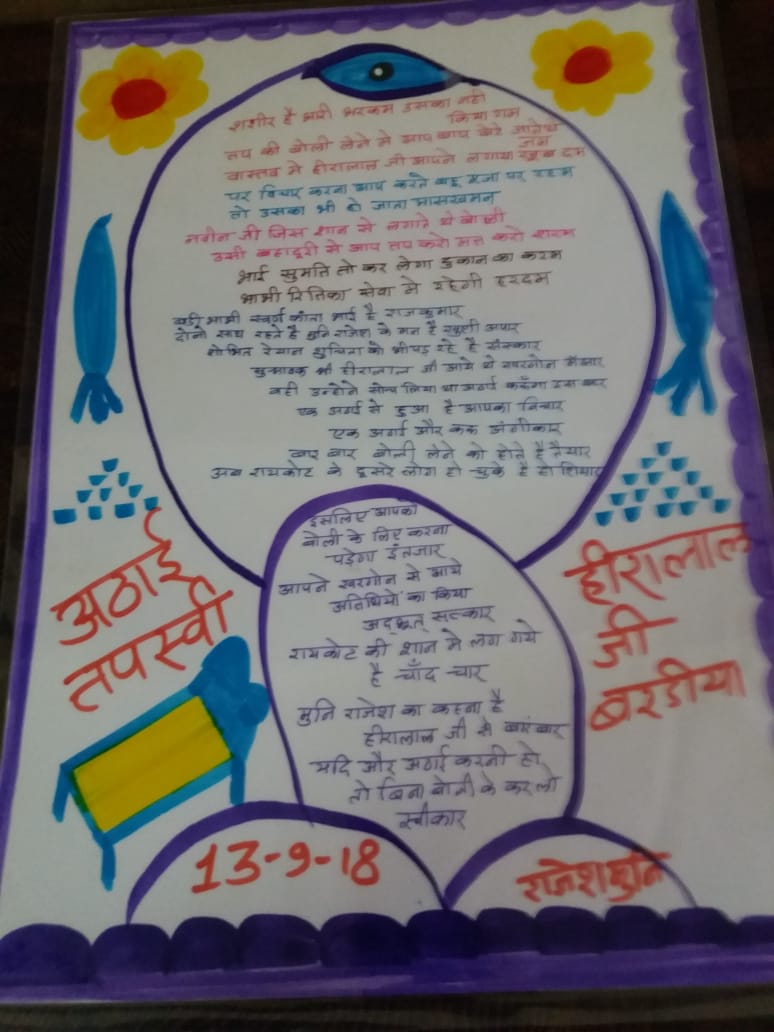 शरीर है भारी भरकम उसका नही
किया गम
तप की बोली लेने मे आप बाप बेटे जानेथे
जम
वास्तव मे हीरालाल जी आपने लगाया खुब दम
पर विचार करना आप करते बहू पूजा पर रहम
तो उसका भी हो जाता मासखमन
नवीन जी जिस शान से लगाते थे बोली
उसी बहादूरी से आप तप करो मत करो शरम
भाई सुमति तो कर लेगा दुकान का करम
भाभी रितिका सेवा मे रहेगी हरदम
बड़ी भाभी स्वर्ण कांता भाई है राजकुमार
दोनो साथ रहते है मुनि राजेश के मन है खुशी अपार
शोभित रेयान शुचिता को भी पड़ रहे है संस्कार
सुश्रावक श्री हीरालाल जी आये थे खरगोन मंझार
वही उन्होने सोच लिया था अठाई करूँगा इस बार
एक अठाई से हुआ है आपका विचार
एक अठाई और करू अंगीकार
बार बार बोली लेने को होते है तैयार
अब रायकोट के दूसरे लोग हो चुके है होशियार
इसलिए आपको
बोली के लिए करना
पड़ेगा इंतजार
आपने खरगोन से आये
अतिथियों का किया
अद्भूत सत्कार
रायकोट की शान मे लग गये
है चाँद चार
मुनि राजेश का कहना है
हीरालाल जी से बारंबार
यदि और अठाई करनी हो
तो बिना बोली के कर लो
स्वीकार
अठाई
तपस्वी
हीरालाल
जी
बरडीया
13-9-18
राजेश मुनि